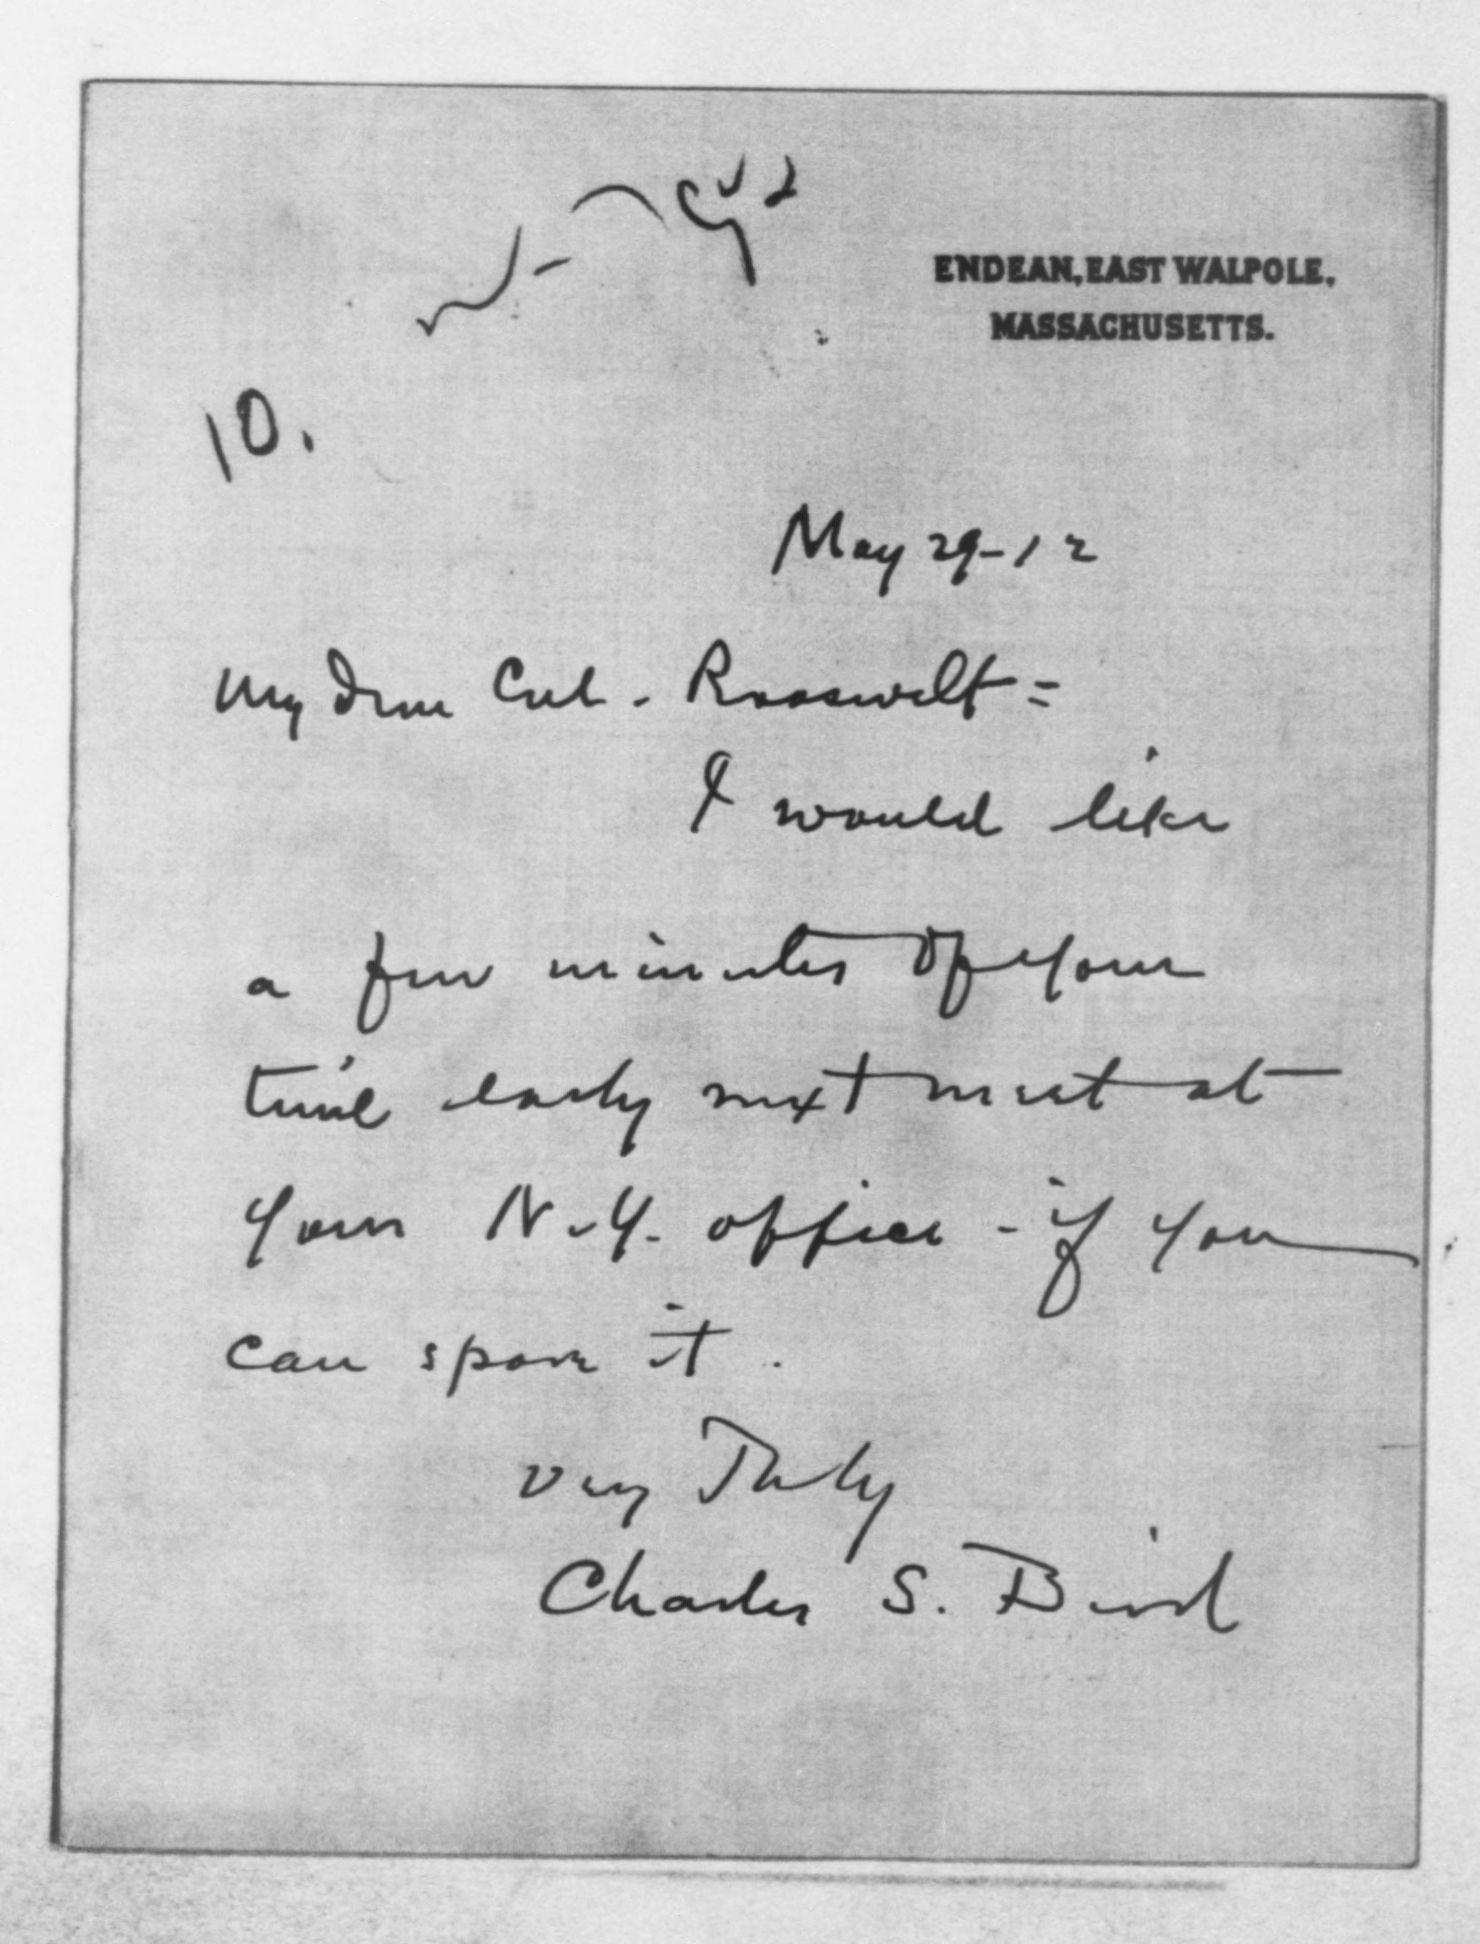 ENDEAN, EAST WALPOLE,
MASSACHUSETTS.
10.
May 29-12
My dear Col. Roosevelt =
I would like
a few minutes of your
time early next week at
your N.Y. office - if you
can spare it.
Very Truly
Charles S. Bird